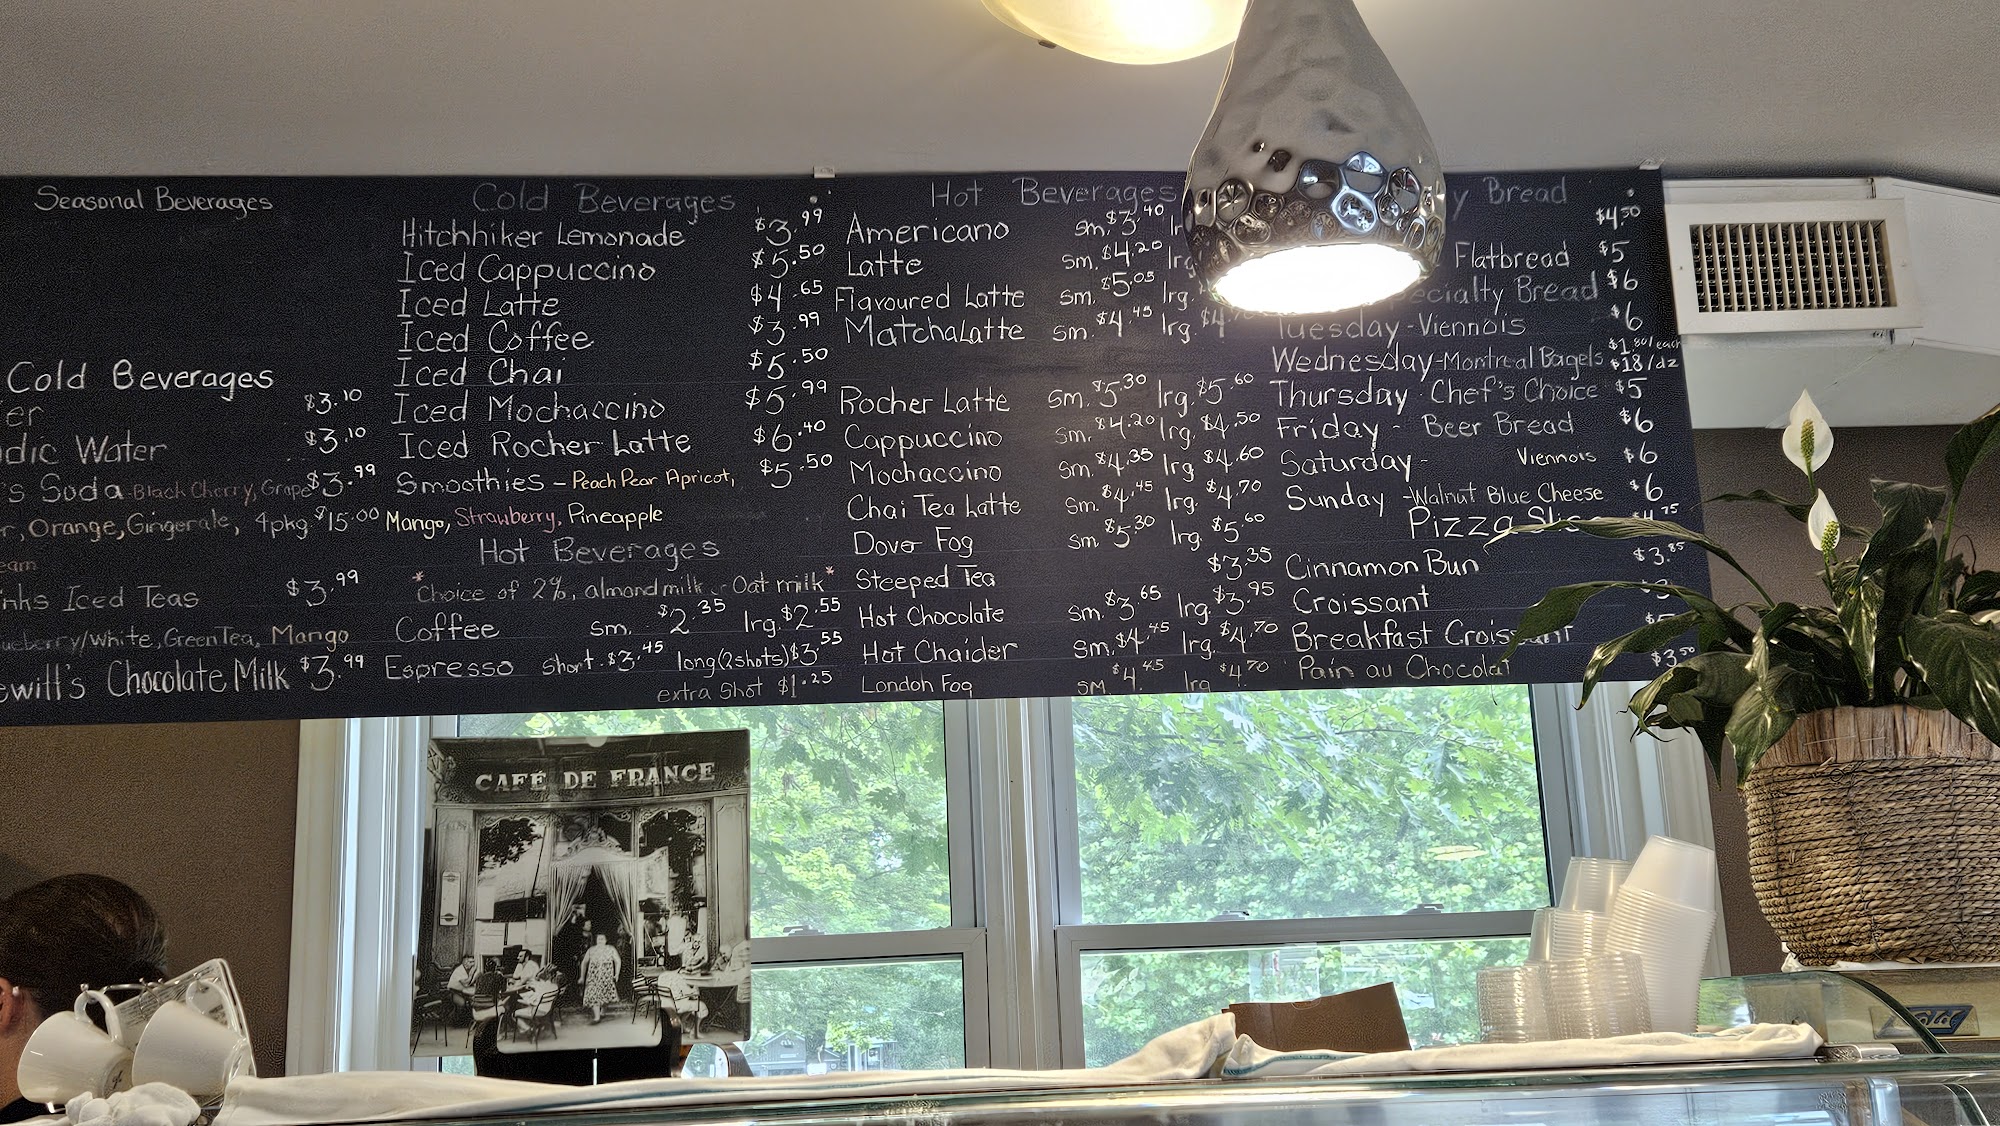 Seasonal Beverages
Cold Beverages
$3.10
Water $3.10
Soda - Black Cherry, Grape $3.99
Orange, Gingerale, 4pkg $15.00
Iced Teas $3.99
/White, Green Tea, Mango
Chocolate Milk $3.99
Cold Beverages
Hitchhiker Lemonade $3.99
Iced Cappuccino $5.50
Iced Latte $4.65
Iced Coffee $3.99
Iced Chai $5.50
Iced Mochaccino $5.99
Iced Rocher Latte $6.40
Smoothies - Peach Pear Apricot, $5.50
Mango, Strawberry, Pineapple
Hot Beverages
*Choice of 2%, almond milk or Oat milk*
Coffee sm. $2.35 lrg. $2.55
Espresso short. $3.45 long (2 shots) $3.55
extra shot $1.25
Hot Beverages
Americano sm. $3.40
Latte sm. $4.20 lrg
Flavoured Latte sm. $5.05 lrg.
Matcha Latte sm. $4.45 lrg.
Rocher Latte sm. $5.30 lrg. $5.60
Cappuccino sm. $4.20 lrg. $4.50
Mochaccino sm. $4.35 lrg $4.60
Chai Tea Latte sm. $4.45 lrg. $4.70
Dover Fog sm. $5.30 lrg. $5.60
Steeped Tea $3.35
Hot Chocolate sm. $3.65 lrg. $3.95
Hot Chaider sm. $4.45 lrg. $4.70
London Fog sm $4.45 lrg $4.70
Bread
$4.50
Flatbread $5
Bread $6
Tuesday - Viennois $6
Wednesday - Montreal Bagels $1.80/each $18/dz
Thursday - Chef's Choice $5
Friday - Beer Bread $6
Saturday - Viennois $6
Sunday - Walnut Blue Cheese $6
Pizza
Cinnamon Bun $3.85
Croissant
Breakfast Croissant
Pain au Chocolat $3.50
CAFÉ DE FRANCE